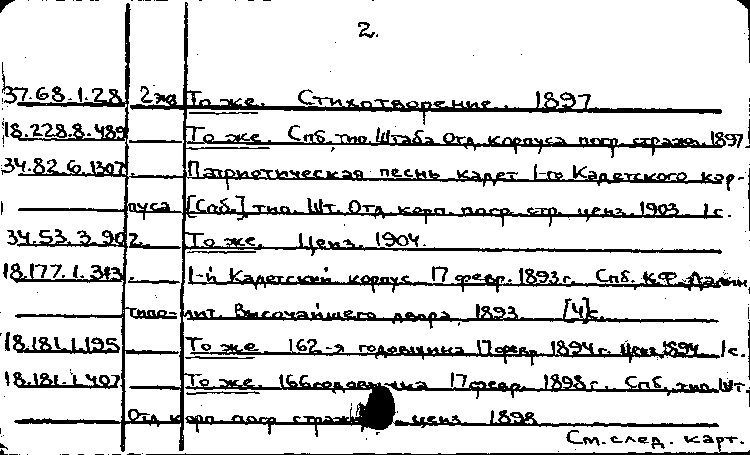 2.
37.68.1.28 2 экз То же. Стихотворение. 1897
18.228.8.489 То же. Спб, тип. Штаба Отд. корпуса погр. стражи. 1897
34.82.6.1307 Патриотическая песнь кадет 1-го Кадетского кор-
пуса [Спб.] тип. Шт. Отд. корп. погр. стр. ценз. 1903 1 с.
34.53.3.902. То же. Ценз. 1904.
18.177.1.313 1-й Кадетский корпус 17 февр. 1893 г. Спб, К.Ф. Далин
типо-лит. Высочайшего двора, 1893. [4] с.
18.181.1.195 То же 162-я годовщина 17 февр. 1894 г. Ценз. 1894 1 с.
18.181.1.407 То же. 166 годовщина 17 февр. 1898 г. Спб, тип. Шт.
Отд. корп. погр. стражи ценз. 1898
См. след. карт.